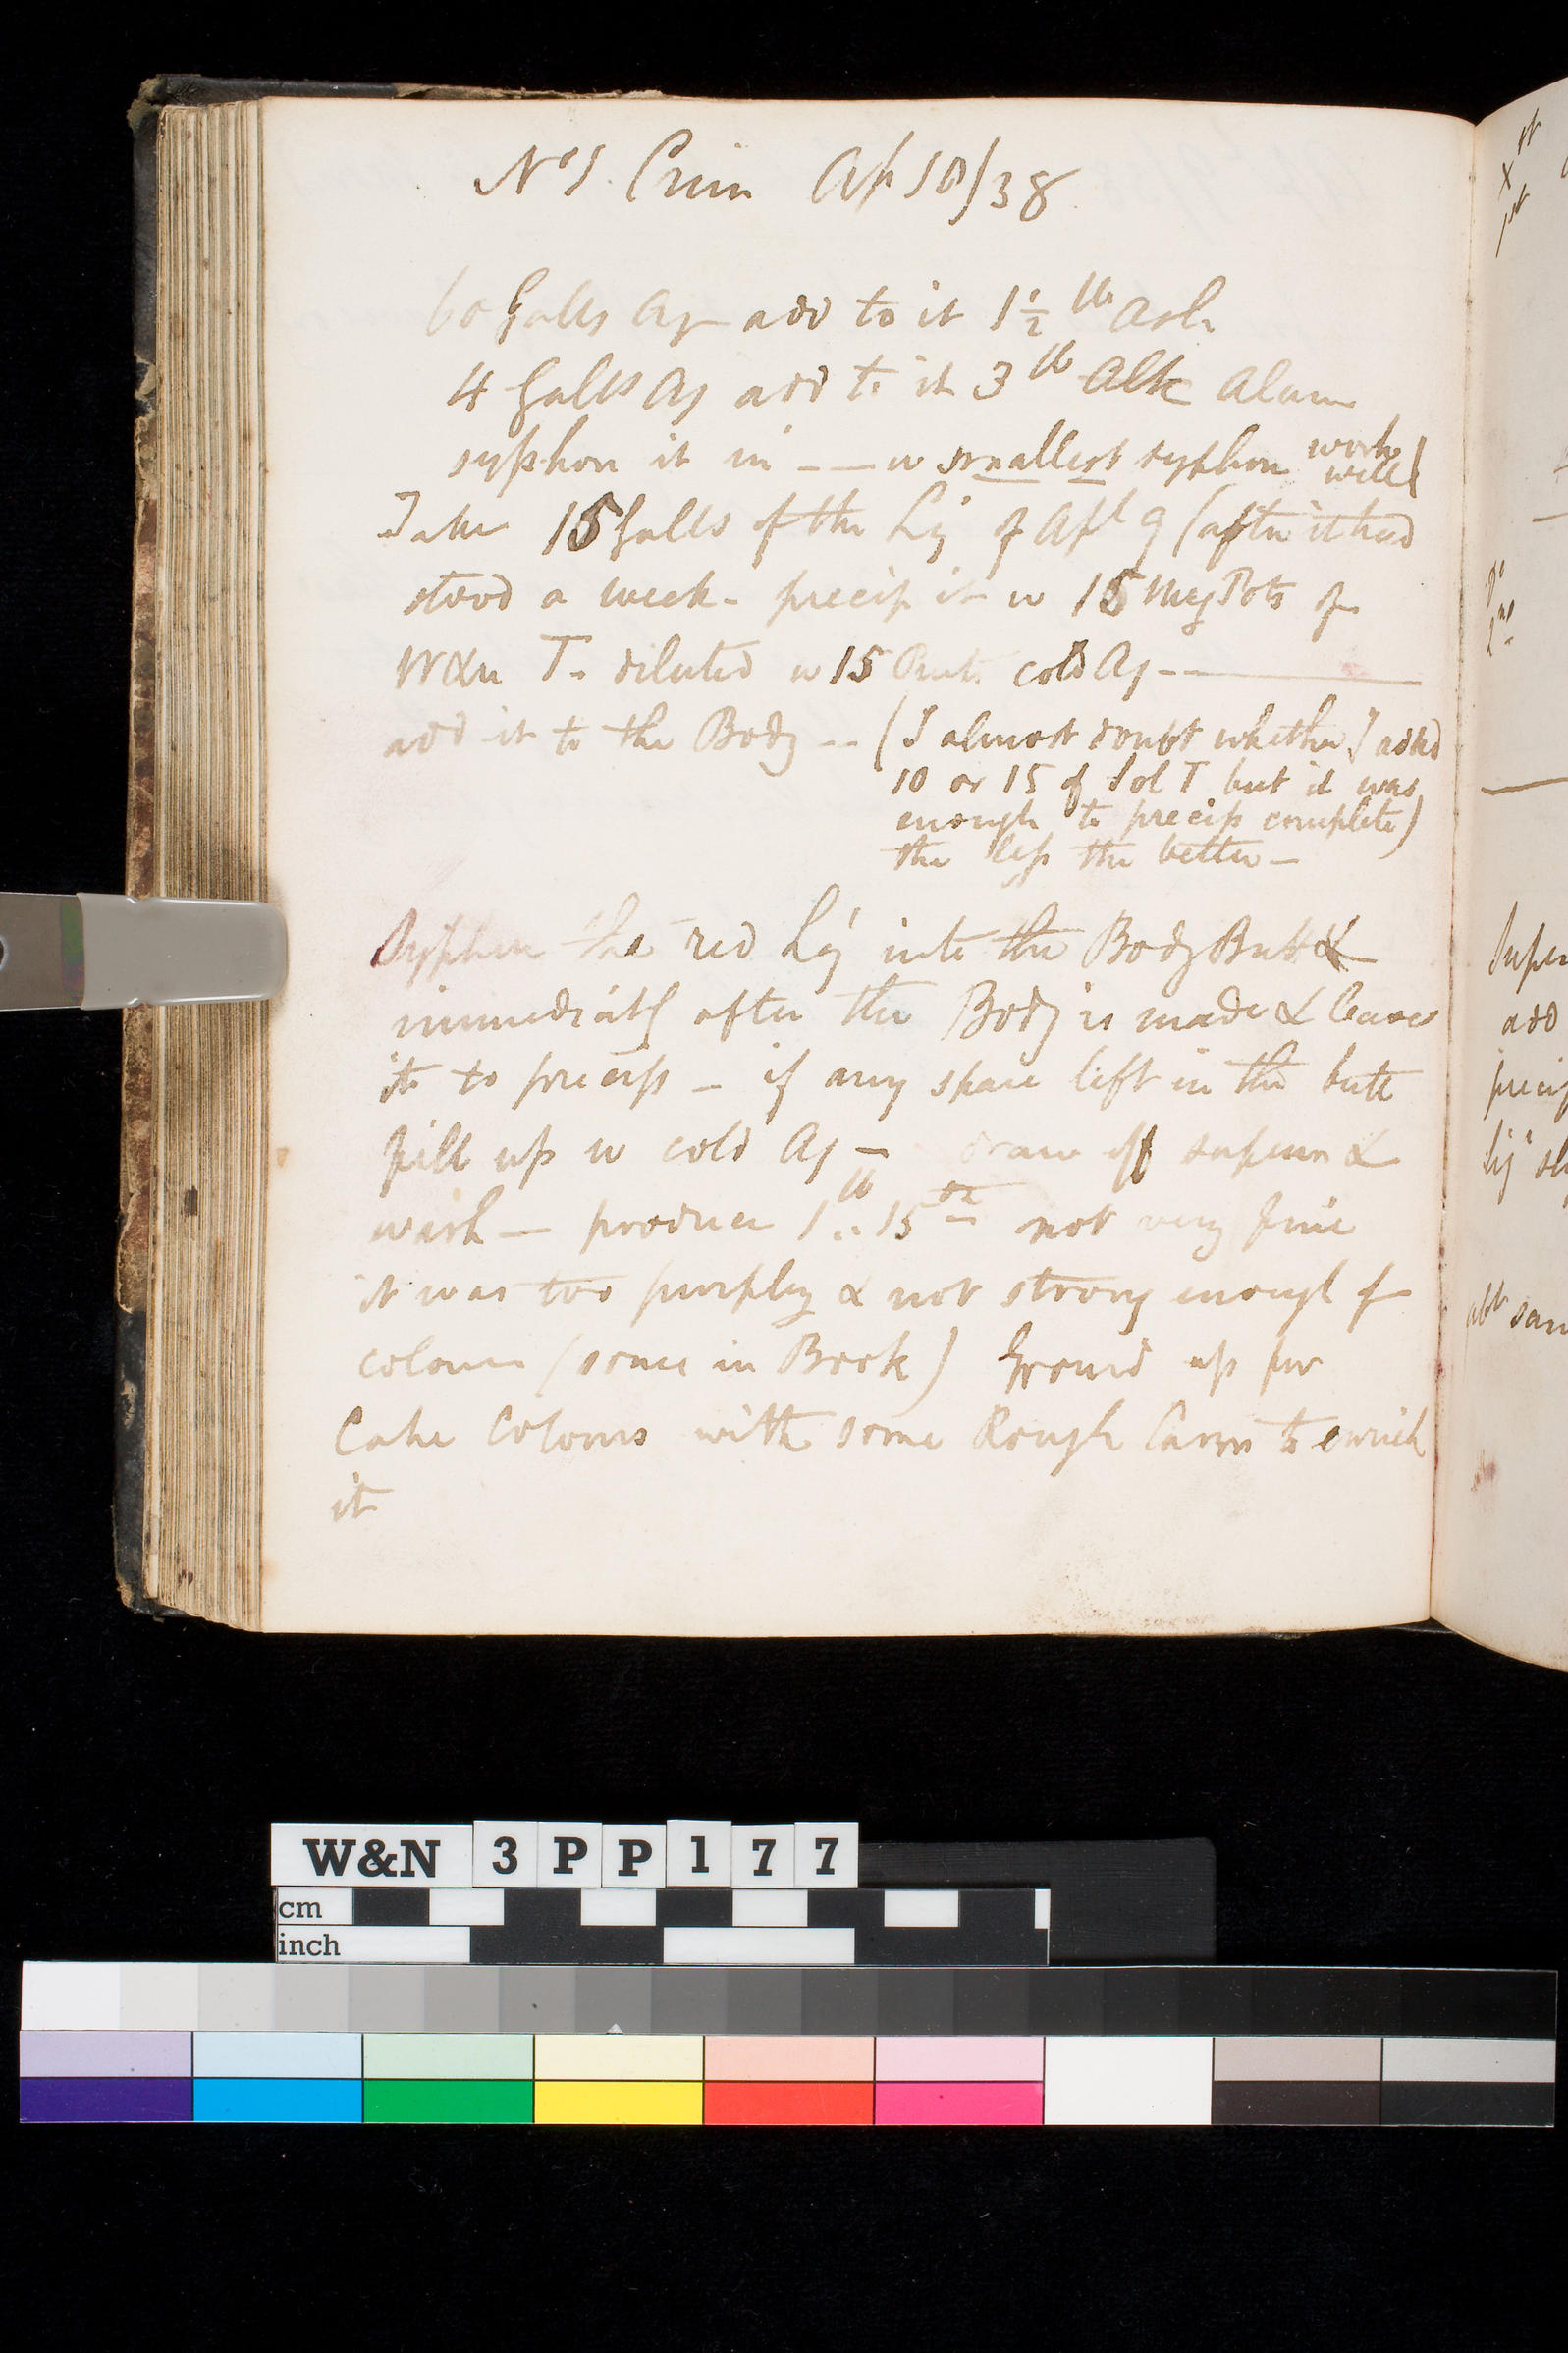 No 1. Crim Ap 10/38
60 Galls Aq add to it 1 1/2 lb Ash
4 Galls Aq add to it 3 lb Alk Alum
syphon it in -- w smallest syphon works well)
Take 15 Galls of the Liq of Apl 9 (after it had
stood a week - precip it w 15 Meg Pots of
T. diluted w 15 Pints cold Aq --
add it to the Body -- (I almost doubt whether I added
10 or 15 of Sol T but it was
enough to precip complete)
the less the better -
Syphon the red Liq into the Body Butt &
immediatly after the Body is made & leave
it to precip - if any space left in the butt
fill up w cold Aq - draw off supern &
wash - produce 1 lb .. 15 oz not very fine
it was too purpley & not strong enough for
colour (some in Book) Ground up for
Cake Colours with some Rough Carm to enrich
it
Super
add
precip
liq
abt
W&N 3PP177
cm
inch